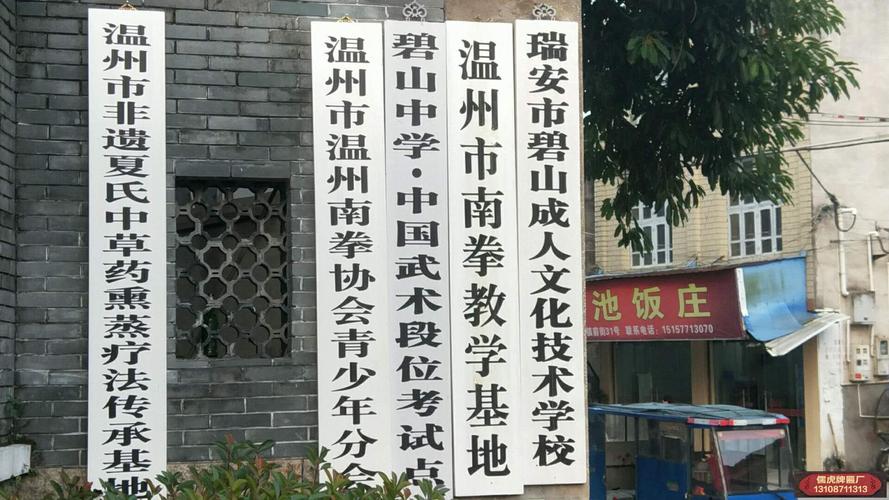 温州市非遗夏氏中草药熏蒸疗法传承基地
温州市温州南拳协会青少年分会
碧山中学·中国武术段位考试点
温州市南拳教学基地
瑞安市碧山成人文化技术学校
池饭庄
前街31号 联系电话：15157713070
儒虎牌匾厂
13108711313